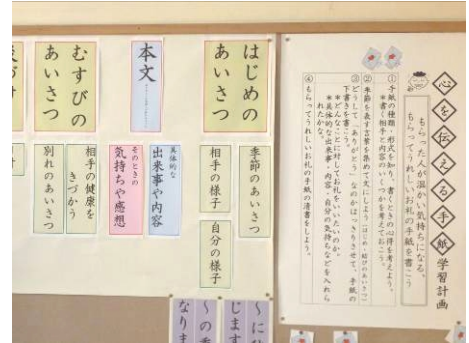 心を伝える手紙学習計画
もらった人が温かい気持ちになる、
もらってうれしいお礼の手紙を書こう
①手紙の種類、形式を知り、書くときの心得を考えよう。
＊書く相手と内容のいくつかを考えておこう。
②季節を表す言葉を集めて文にしよう(はじめ・結びのあいさつ)
③どうして「ありがとう」なのかはっきりさせて、手紙の
下書きを書こう。
＊どんなことに対してお礼をいいたいのか。
＊具体的な出来事、内容、自分の気持ちなどを入れら
れたかな。
④もらってうれしいお礼の手紙の清書をしよう。
はじめの
あいさつ
季節のあいさつ
相手の様子
自分の様子
本文
具体的な
出来事や内容
そのときの
気持ちや感想
むすびの
あいさつ
相手の健康を
きづかう
別れのあいさつ
じます
～の
なりま